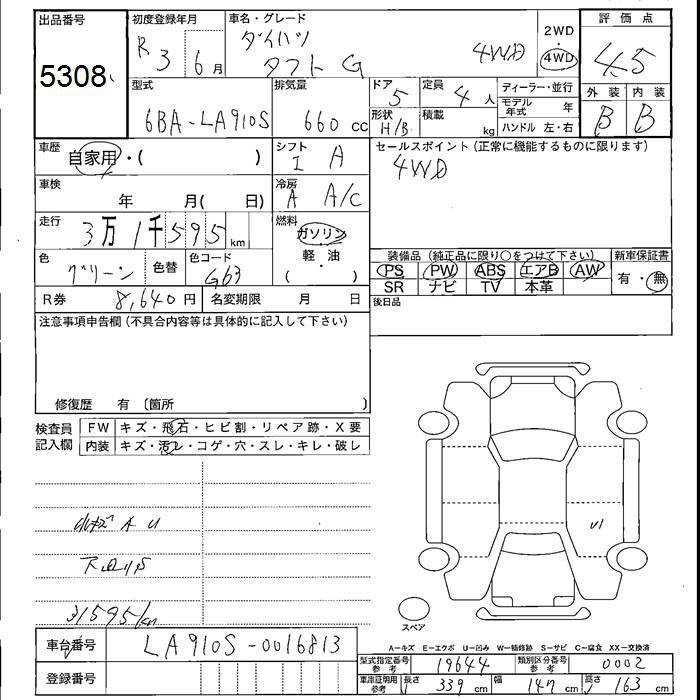 出品番号 初度登録年月 車名・グレード 評価点
5308 R3 6月 ダイハツ タフト G 4WD 2WD・4WD 4.5
型式 排気量 ドア 定員 ディーラー・並行 外装 内装
6BA-LA910S 660 cc 5 4人 モデル年式 年 B B
形状 H/B 積載 kg ハンドル 左・右
車歴 自家用・( ) シフト I A セールスポイント(正常に機能するものに限ります)
4WD
車検 年 月( 日) 冷房 A A/C
走行 3万1千595km 燃料 ガソリン・軽油 ( )
装備品(純正品に限り○をつけて下さい) 新車保証書
色 グリーン 色替 色コード G63
PS PW ABS エアB AW 有・無
SR ナビ TV 本革
R券 8,640円 名変期限 月 日 後日品
注意事項申告欄(不具合内容等は具体的に記入して下さい)
修復歴 有 〔箇所 〕
検査員記入欄 FW キズ・飛石・ヒビ割・リペア跡・X要
内装 キズ・汚レ・コゲ・穴・スレ・キレ・破レ
A U
U1
31595/km
スペア
A-キズ E-エクボ U-凹み W-補修跡 S-サビ C-腐食 XX-交換済
車台番号 LA910S-0016813
型式指定番号 参考 19644 類別区分番号 参考 0002
登録番号 車庫証明用 参考 長さ 339 cm 幅 147 cm 高さ 163 cm